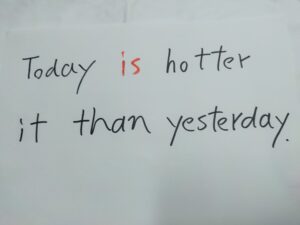 Today is hotter
it than yesterday.